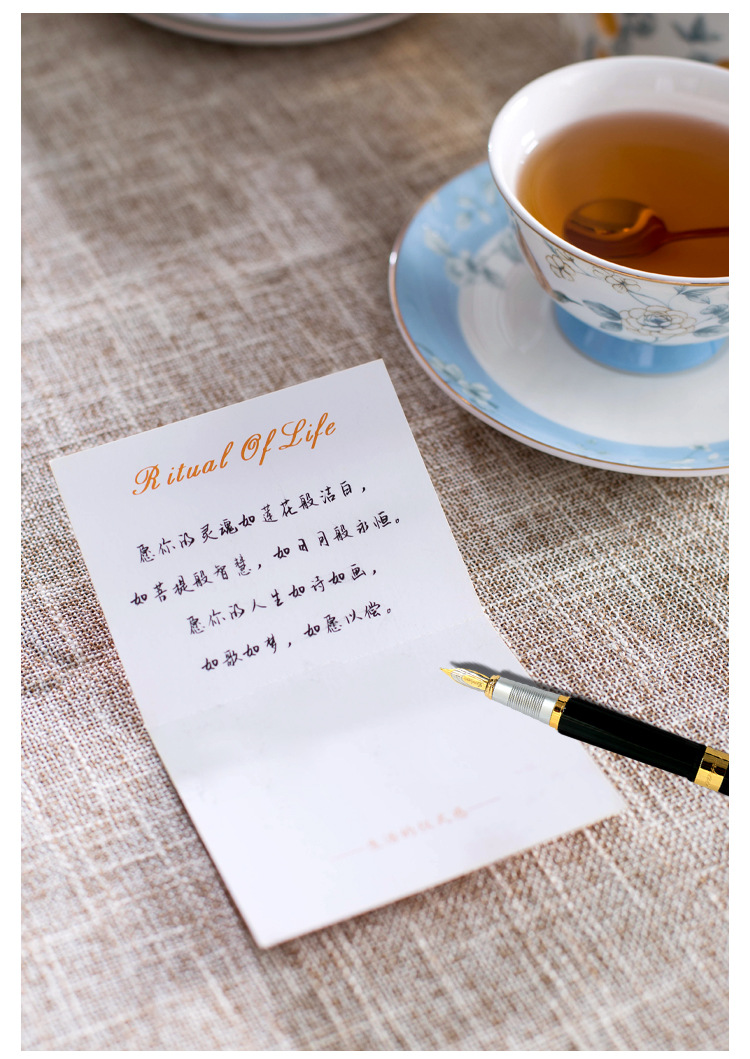 Ritual Of Life
愿你的灵魂如莲花般洁白，
如菩提般智慧，如日月般永恒。
愿你的人生如诗如画，
如歌如梦，如愿以偿。
——生活的仪式感——